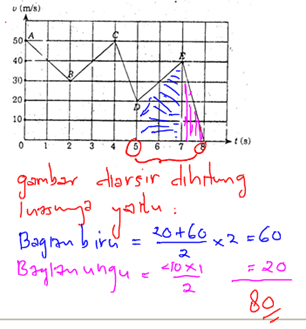 v (m/s)
A
50
C
40
E
30
B
20
D
10
0 1 2 3 4 5 6 7 8 t (s)
gambar diarsir dihitung
luasnya yaitu :
Bagian biru = 20+60/2 × 2 = 60
Bagian ungu = 40×1/2 = 20
80